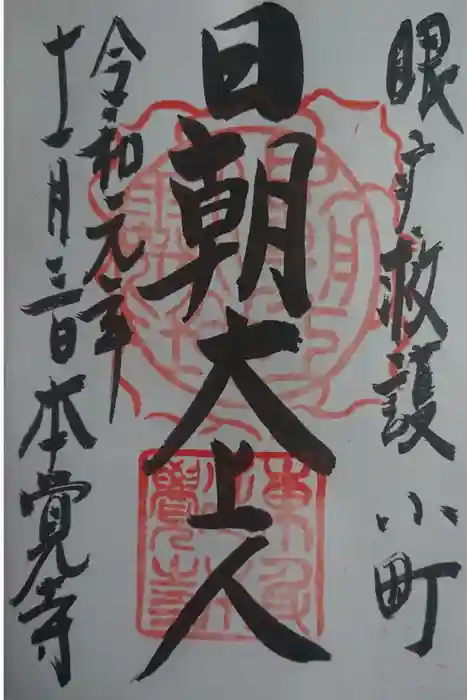 眼疾救護 小町
日朝大上人
令和元年
十一月三日 本覺寺